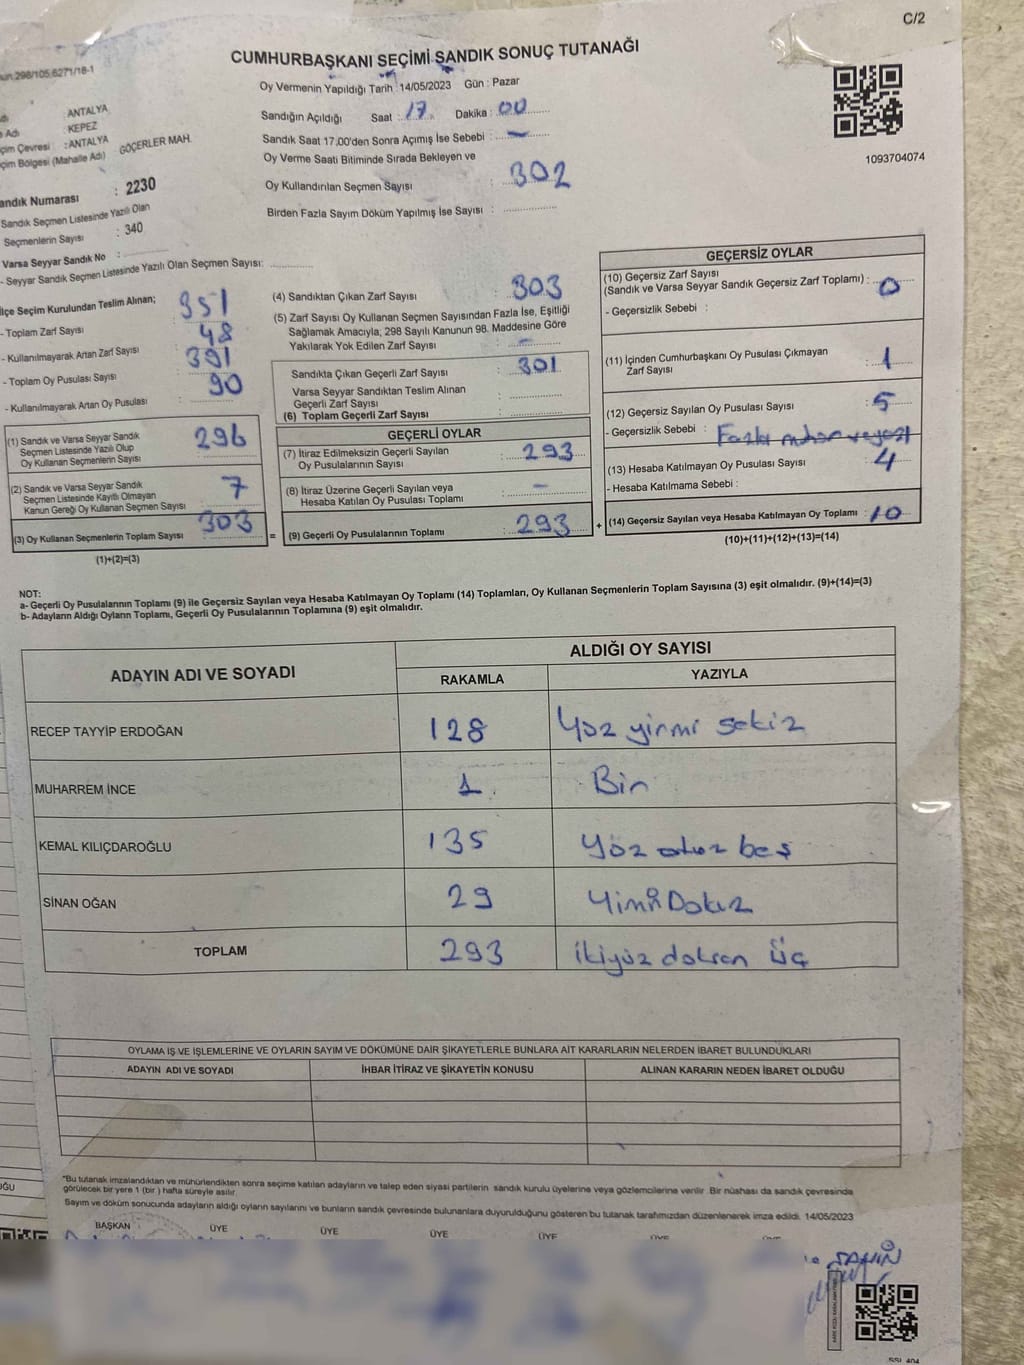 C/2
CUMHURBAŞKANI SEÇİMİ SANDIK SONUÇ TUTANAĞI
298/105,6271/18-1
Oy Vermenin Yapıldığı Tarih : 14/05/2023 Gün : Pazar
Sandığın Açıldığı Saat : 17 Dakika : 00
Sandık Saat 17.00'den Sonra Açımış İse Sebebi : -
Oy Verme Saati Bitiminde Sırada Bekleyen ve
Oy Kullandırılan Seçmen Sayısı : 302
Birden Fazla Sayım Döküm Yapılmış İse Sayısı :
1093704074
: ANTALYA
Adı : KEPEZ
çim Çevresi : ANTALYA
çim Bölgesi (Mahalle Adı) GÖÇERLER MAH.
andık Numarası : 2230
Sandık Seçmen Listesinde Yazılı Olan
Seçmenlerin Sayısı : 340
Varsa Seyyar Sandık No :
- Seyyar Sandık Seçmen Listesinde Yazılı Olan Seçmen Sayısı:
lçe Seçim Kurulundan Teslim Alınan;
- Toplam Zarf Sayısı : 351
- Kullanılmayarak Artan Zarf Sayısı : 48
- Toplam Oy Pusulası Sayısı : 391
- Kullanılmayarak Artan Oy Pusulası : 90
(1) Sandık ve Varsa Seyyar Sandık
Seçmen Listesinde Yazılı Olup
Oy Kullanan Seçmenlerin Sayısı : 296
(2) Sandık ve Varsa Seyyar Sandık
Seçmen Listesinde Kayıtlı Olmayan
Kanun Gereği Oy Kullanan Seçmen Sayısı : 7
(3) Oy Kullanan Seçmenlerin Toplam Sayısı : 303
(1)+(2)=(3)
(4) Sandıktan Çıkan Zarf Sayısı : 303
(5) Zarf Sayısı Oy Kullanan Seçmen Sayısından Fazla İse, Eşitliği
Sağlamak Amacıyla; 298 Sayılı Kanunun 98. Maddesine Göre
Yakılarak Yok Edilen Zarf Sayısı : -
Sandıkta Çıkan Geçerli Zarf Sayısı : 301
Varsa Seyyar Sandıktan Teslim Alınan
Geçerli Zarf Sayısı :
(6) Toplam Geçerli Zarf Sayısı :
GEÇERLİ OYLAR
(7) İtiraz Edilmeksizin Geçerli Sayılan
Oy Pusulalarının Sayısı : 293
(8) İtiraz Üzerine Geçerli Sayılan veya
Hesaba Katılan Oy Pusulası Toplamı : -
= (9) Geçerli Oy Pusulalarının Toplamı : 293
GEÇERSİZ OYLAR
(10) Geçersiz Zarf Sayısı
(Sandık ve Varsa Seyyar Sandık Geçersiz Zarf Toplamı) : 0
- Geçersizlik Sebebi :
(11) İçinden Cumhurbaşkanı Oy Pusulası Çıkmayan
Zarf Sayısı : 1
(12) Geçersiz Sayılan Oy Pusulası Sayısı : 5
- Geçersizlik Sebebi : Fazla
(13) Hesaba Katılmayan Oy Pusulası Sayısı : 4
- Hesaba Katılmama Sebebi :
+ (14) Geçersiz Sayılan veya Hesaba Katılmayan Oy Toplamı : 10
(10)+(11)+(12)+(13)=(14)
NOT:
a- Geçerli Oy Pusulalarının Toplamı (9) ile Geçersiz Sayılan veya Hesaba Katılmayan Oy Toplamı (14) Toplamları, Oy Kullanan Seçmenlerin Toplam Sayısına (3) eşit olmalıdır. (9)+(14)=(3)
b- Adayların Aldığı Oyların Toplamı, Geçerli Oy Pusulalarının Toplamına (9) eşit olmalıdır.
ADAYIN ADI VE SOYADI
ALDIĞI OY SAYISI
RAKAMLA YAZIYLA
RECEP TAYYİP ERDOĞAN 128 Yüz yirmi sekiz
MUHARREM İNCE 1 Bir
KEMAL KILIÇDAROĞLU 135 Yüz otuz beş
SİNAN OĞAN 29 Yirmi Dokuz
TOPLAM 293 ikiyüz doksan üç
OYLAMA İŞ VE İŞLEMLERİNE VE OYLARIN SAYIM VE DÖKÜMÜNE DAİR ŞİKAYETLERLE BUNLARA AİT KARARLARIN NELERDEN İBARET BULUNDUKLARI
ADAYIN ADI VE SOYADI İHBAR İTİRAZ VE ŞİKAYETİN KONUSU ALINAN KARARIN NEDEN İBARET OLDUĞU
"Bu tutanak imzalandıktan ve mühürlendikten sonra seçime katılan adayların ve talep eden siyasi partilerin sandık kurulu üyelerine veya gözlemcilerine verilir .Bir nüshası da sandık çevresinde
görülecek bir yere 1 (bir ) hafta süreyle asılır.
Sayım ve döküm sonucunda adayların aldığı oyların sayılarını ve bunların sandık çevresinde bulunanlara duyurulduğunu gösteren bu tutanak tarafımızdan düzenlenerek imza edildi. 14/05/2023
BAŞKAN ÜYE ÜYE ÜYE ÜYE ÜYE ÜYE
ŞAHİN